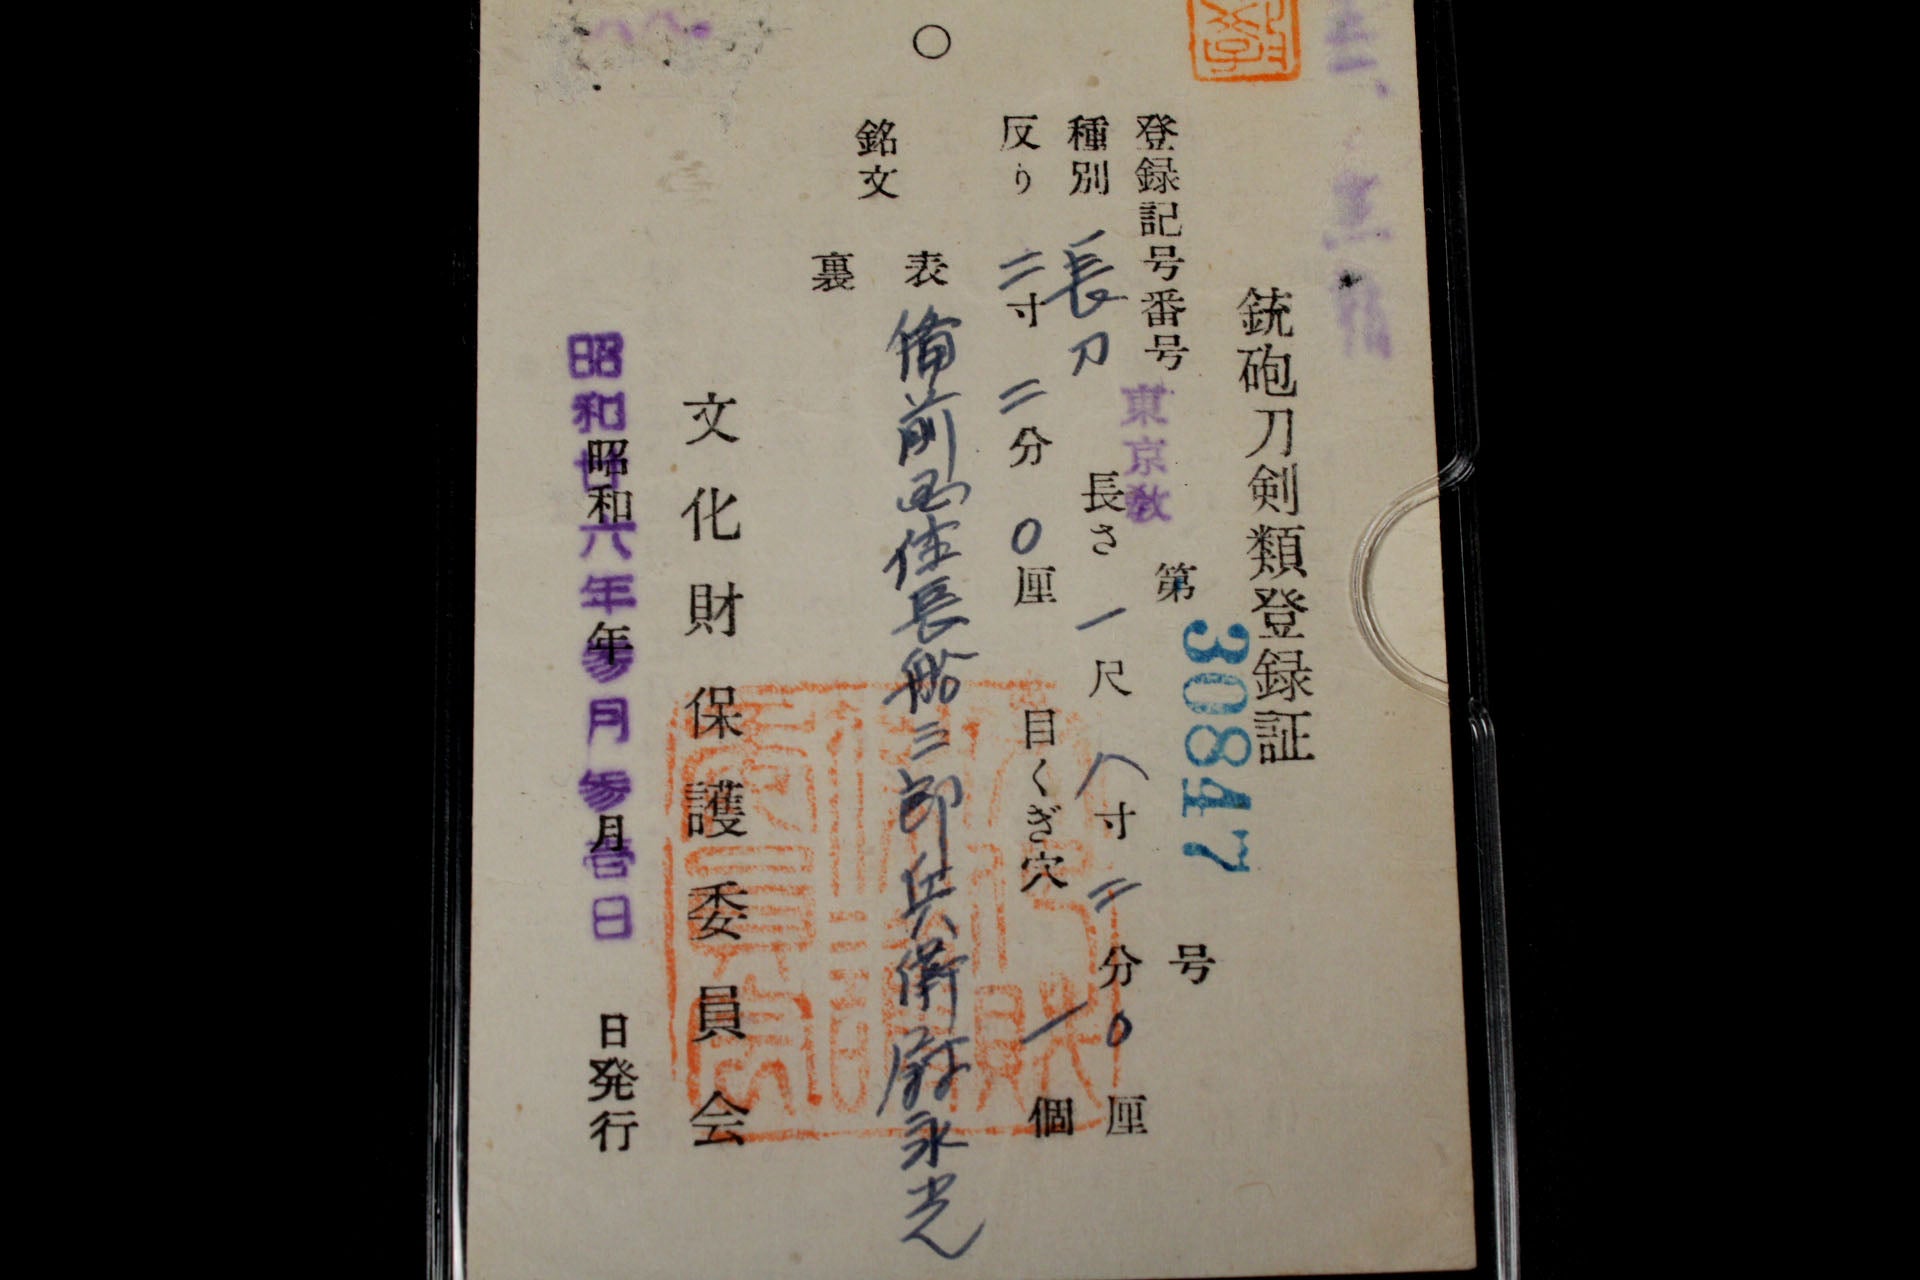 銃砲刀剣類登録証
登録記号番号 東京教 第 30847 号
種別 長刀 長さ 一尺 八寸 二分 0厘
反り 二寸 二分 0厘 目くぎ穴 一個
銘文
表 備前国住長船三郎兵衛尉永光
裏
文化財保護委員会
昭和 年 月 日発行
昭和廿六年参月参日